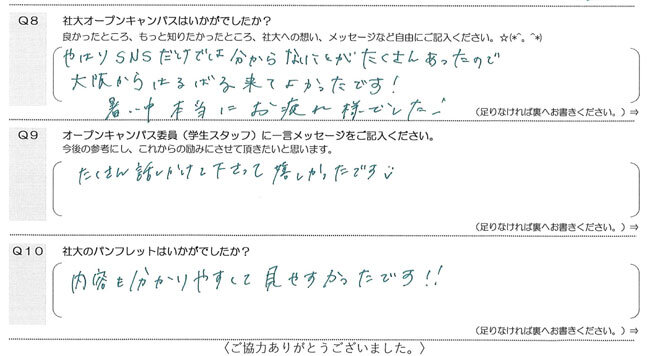 Q8 社大オープンキャンパスはいかがでしたか？
良かったところ、もっと知りたかったところ、社大への想い、メッセージなど自由にご記入ください。☆(*^。^*)
やはりSNSだけでは分からないことがたくさんあったので
大阪からはるばる来てよかったです！
暑い中本当にお疲れ様でした
（足りなければ裏へお書きください。）⇒
Q9 オープンキャンパス委員（学生スタッフ）に一言メッセージをご記入ください。
今後の参考にし、これからの励みにさせて頂きたいと思います。
たくさん話しかけて下さって嬉しかったです
（足りなければ裏へお書きください。）⇒
Q10 社大のパンフレットはいかがでしたか？
内容も分かりやすくて見やすかったです!!
（足りなければ裏へお書きください。）⇒
〈ご協力ありがとうございました。〉